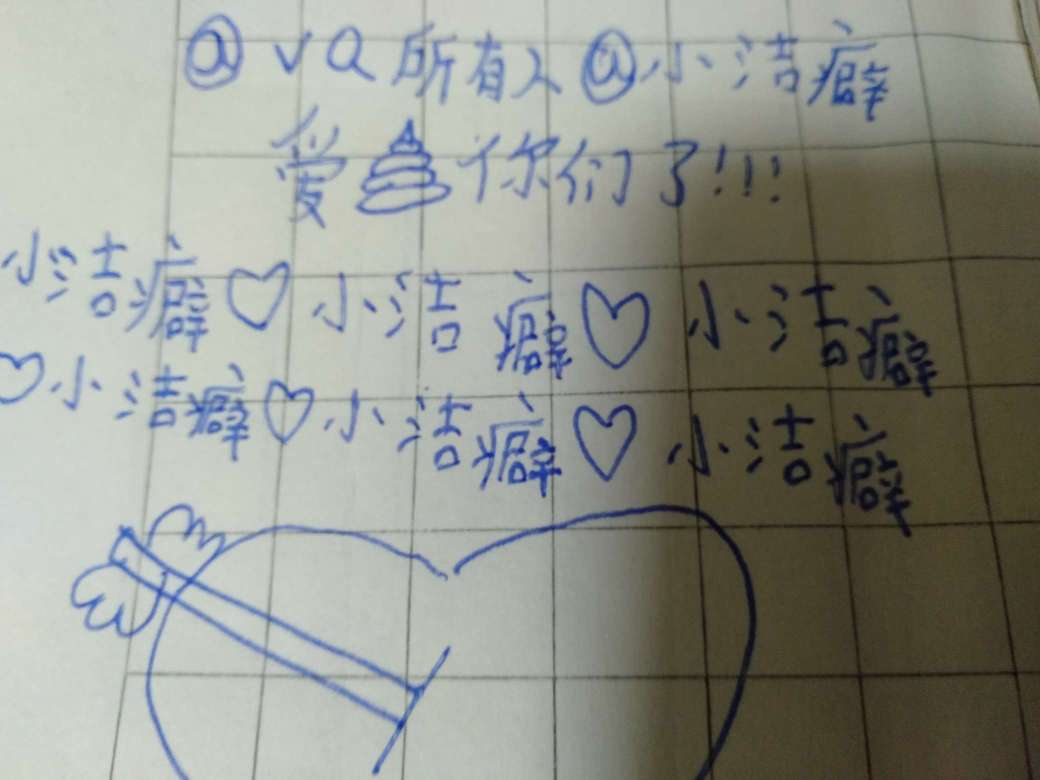 @VQ所有人@小洁癖
爱你们了!!!
小洁癖♡小洁癖♡小洁癖
♡小洁癖♡小洁癖♡小洁癖